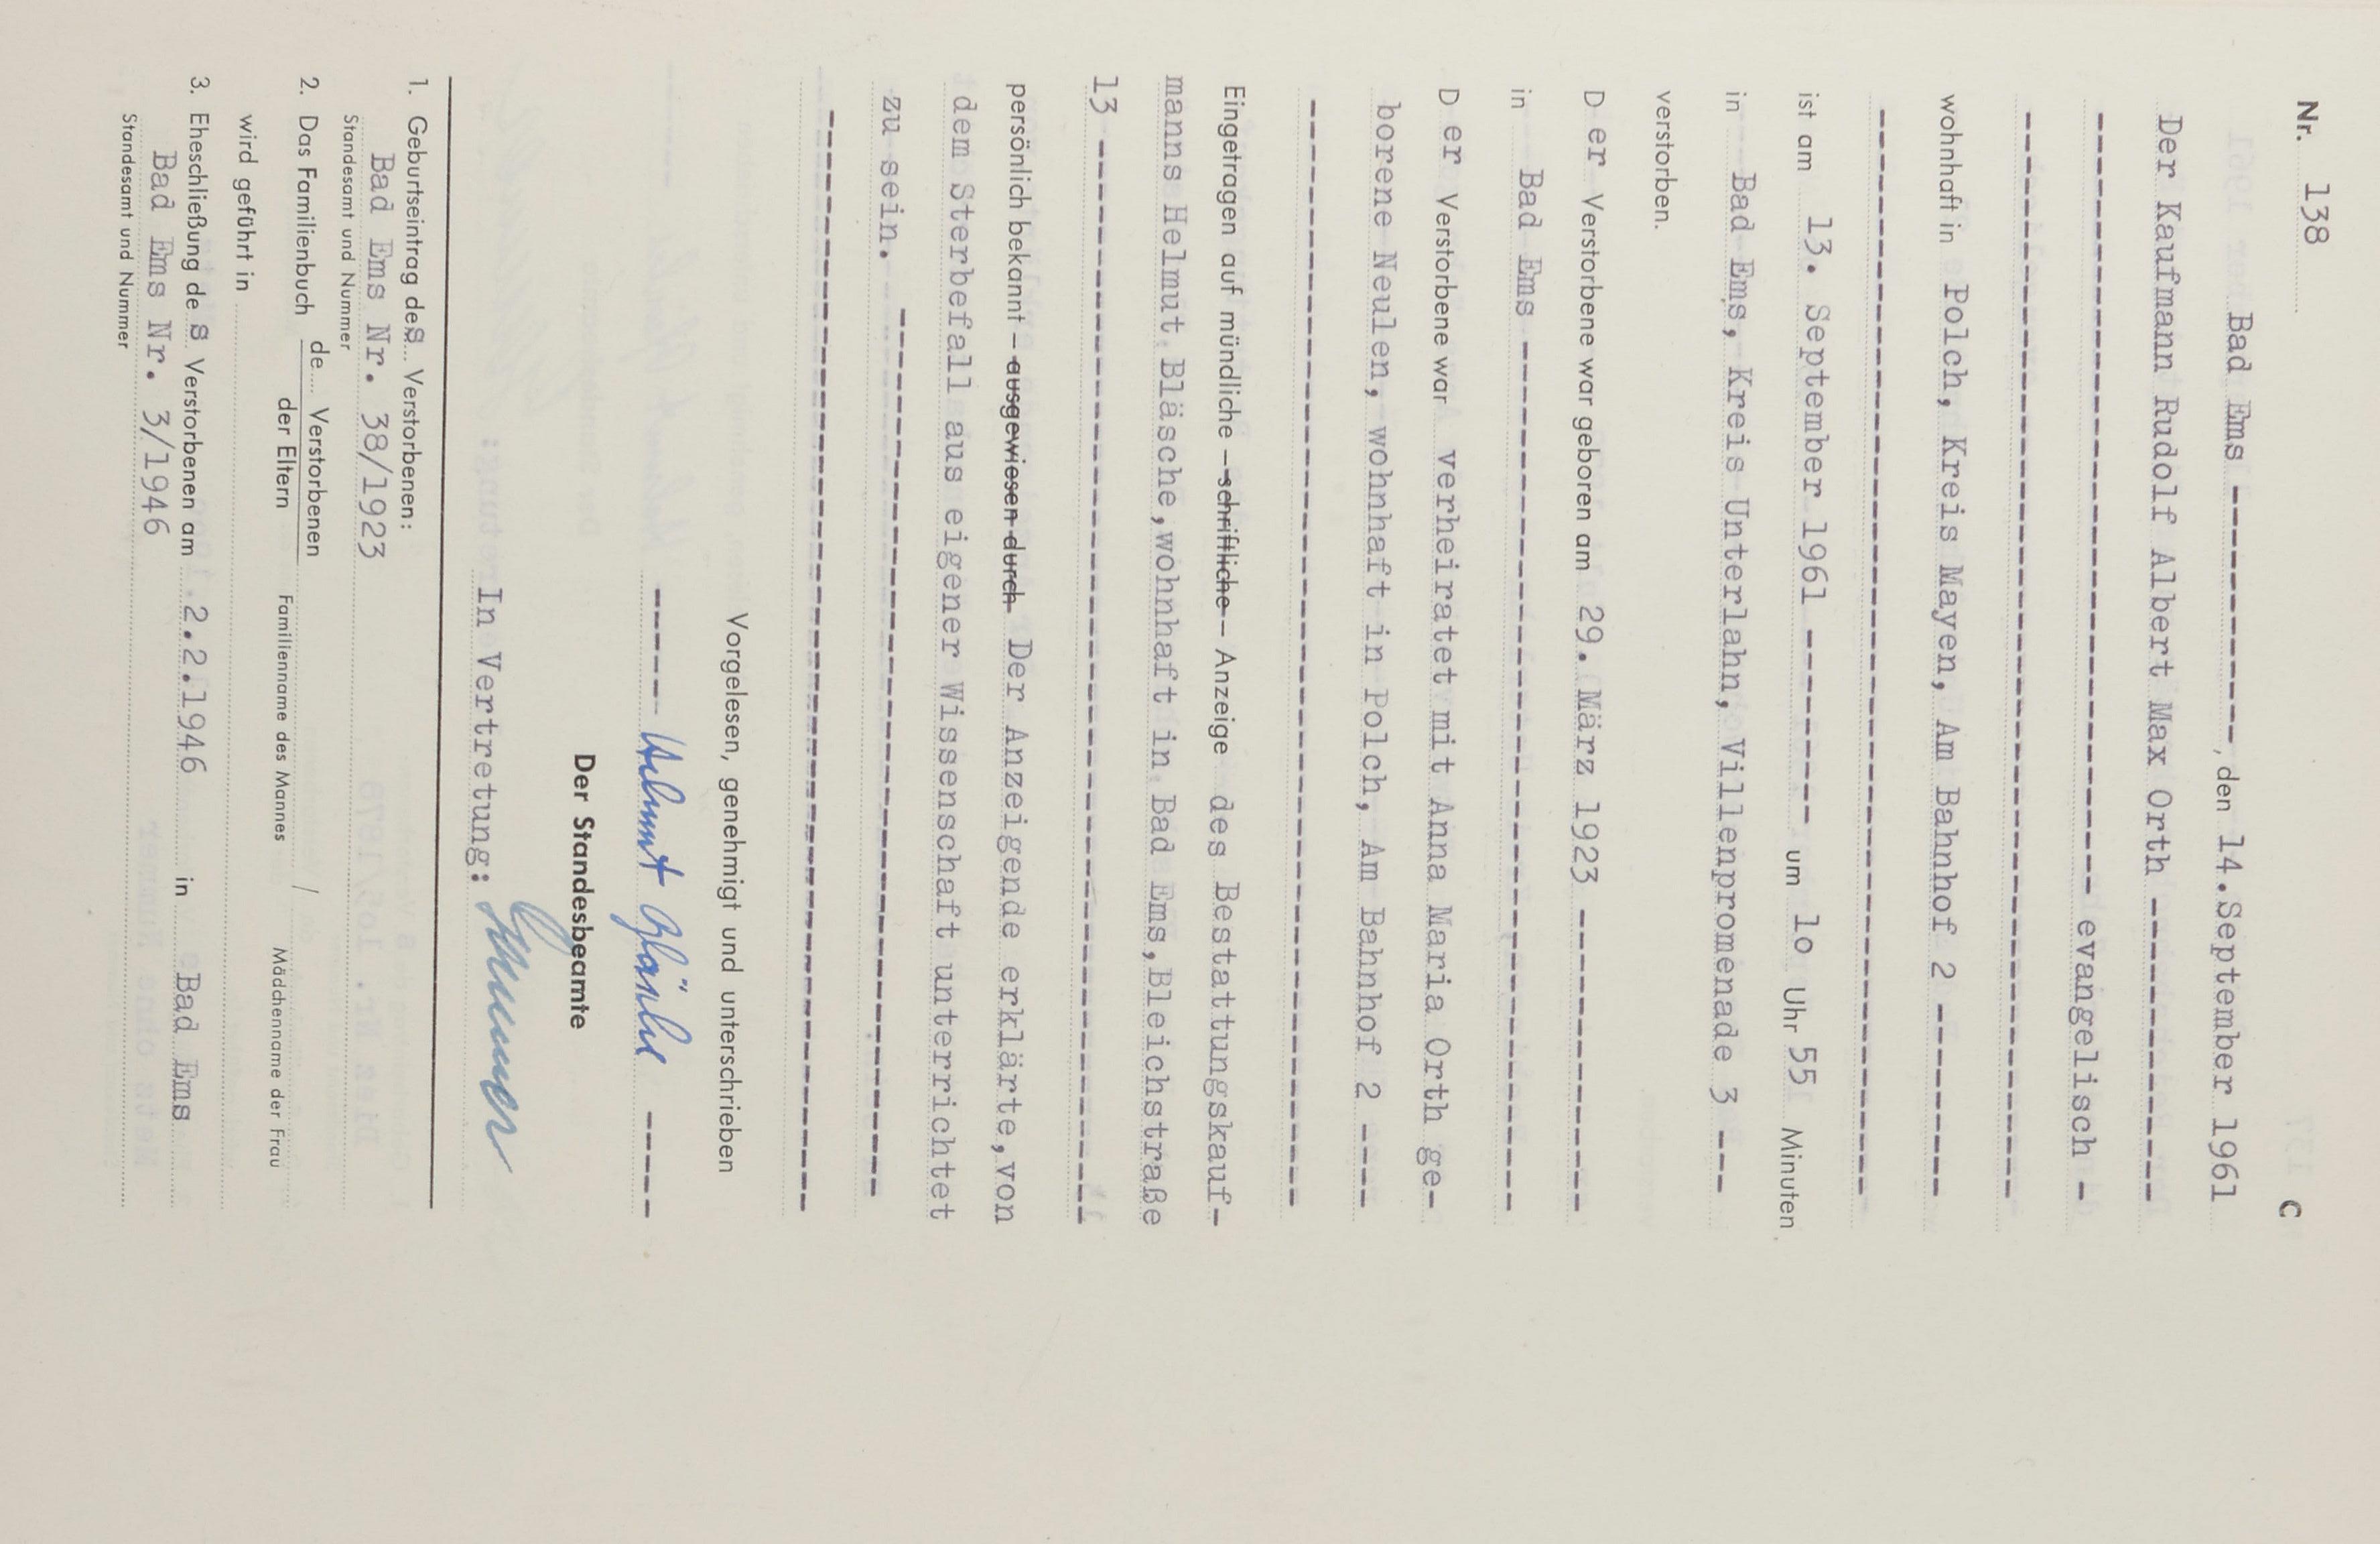 Nr. 138
C
Bad Ems ------------, den 14.September 1961
Der Kaufmann Rudolf Albert Max Orth --------------
------------------------------------ evangelisch -
--------------------------------------------------
wohnhaft in Polch, Kreis Mayen, Am Bahnhof 2 ---------
--------------------------------------------------
ist am 13. September 1961 --------- um 1o Uhr 55 Minuten
in Bad Ems, Kreis Unterlahn, Villenpromenade 3 ---
verstorben.
D er Verstorbene war geboren am 29. März 1923 --------------
in Bad Ems ----------------------------------------
D er Verstorbene war verheiratet mit Anna Maria Orth ge-
borene Neulen, wohnhaft in Polch, Am Bahnhof 2 ----
--------------------------------------------------
Eingetragen auf mündliche – schriftliche – Anzeige des Bestattungskauf-
manns Helmut Bläsche,wohnhaft in Bad Ems,Bleichstraße
13 --------------------------------------------------
persönlich bekannt – ausgewiesen durch Der Anzeigende erklärte,von
dem Sterbefall aus eigener Wissenschaft unterrichtet
zu sein. ----------------------------------------
--------------------------------------------------
Vorgelesen, genehmigt und unterschrieben
------ Helmut Bläsche -----
Der Standesbeamte
In Vertretung:
1. Geburtseintrag des Verstorbenen:
Bad Ems Nr. 38/1923
Standesamt und Nummer
2. Das Familienbuch de Verstorbenen
der Eltern
Familienname des Mannes
/
Mädchenname der Frau
wird geführt in
3. Eheschließung de s Verstorbenen am 2.2.1946 in Bad Ems
Bad Ems Nr. 3/1946
Standesamt und Nummer